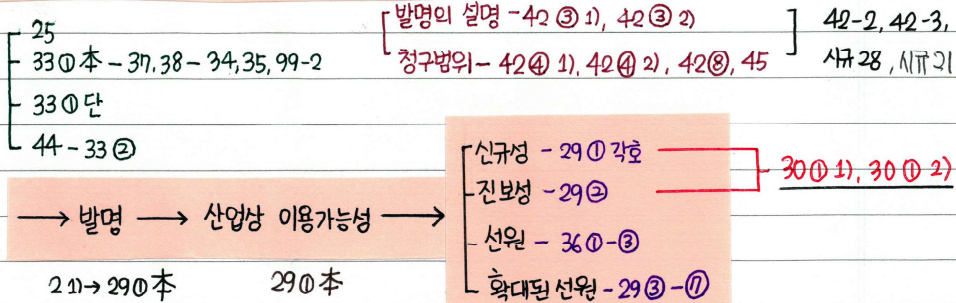 25
33①本 - 37, 38 - 34, 35, 99-2
33①단
44 - 33②
발명의 설명 - 42③1), 42③2)
청구범위 - 42④1), 42④2), 42⑧, 45
42-2, 42-3,
시규28, 시규21
→ 발명 → 산업상 이용가능성 →
2 1)→29①本
29①本
신규성 - 29①각호
진보성 - 29②
선원 - 36①-③
확대된 선원 - 29③-⑦
30①1), 30①2)